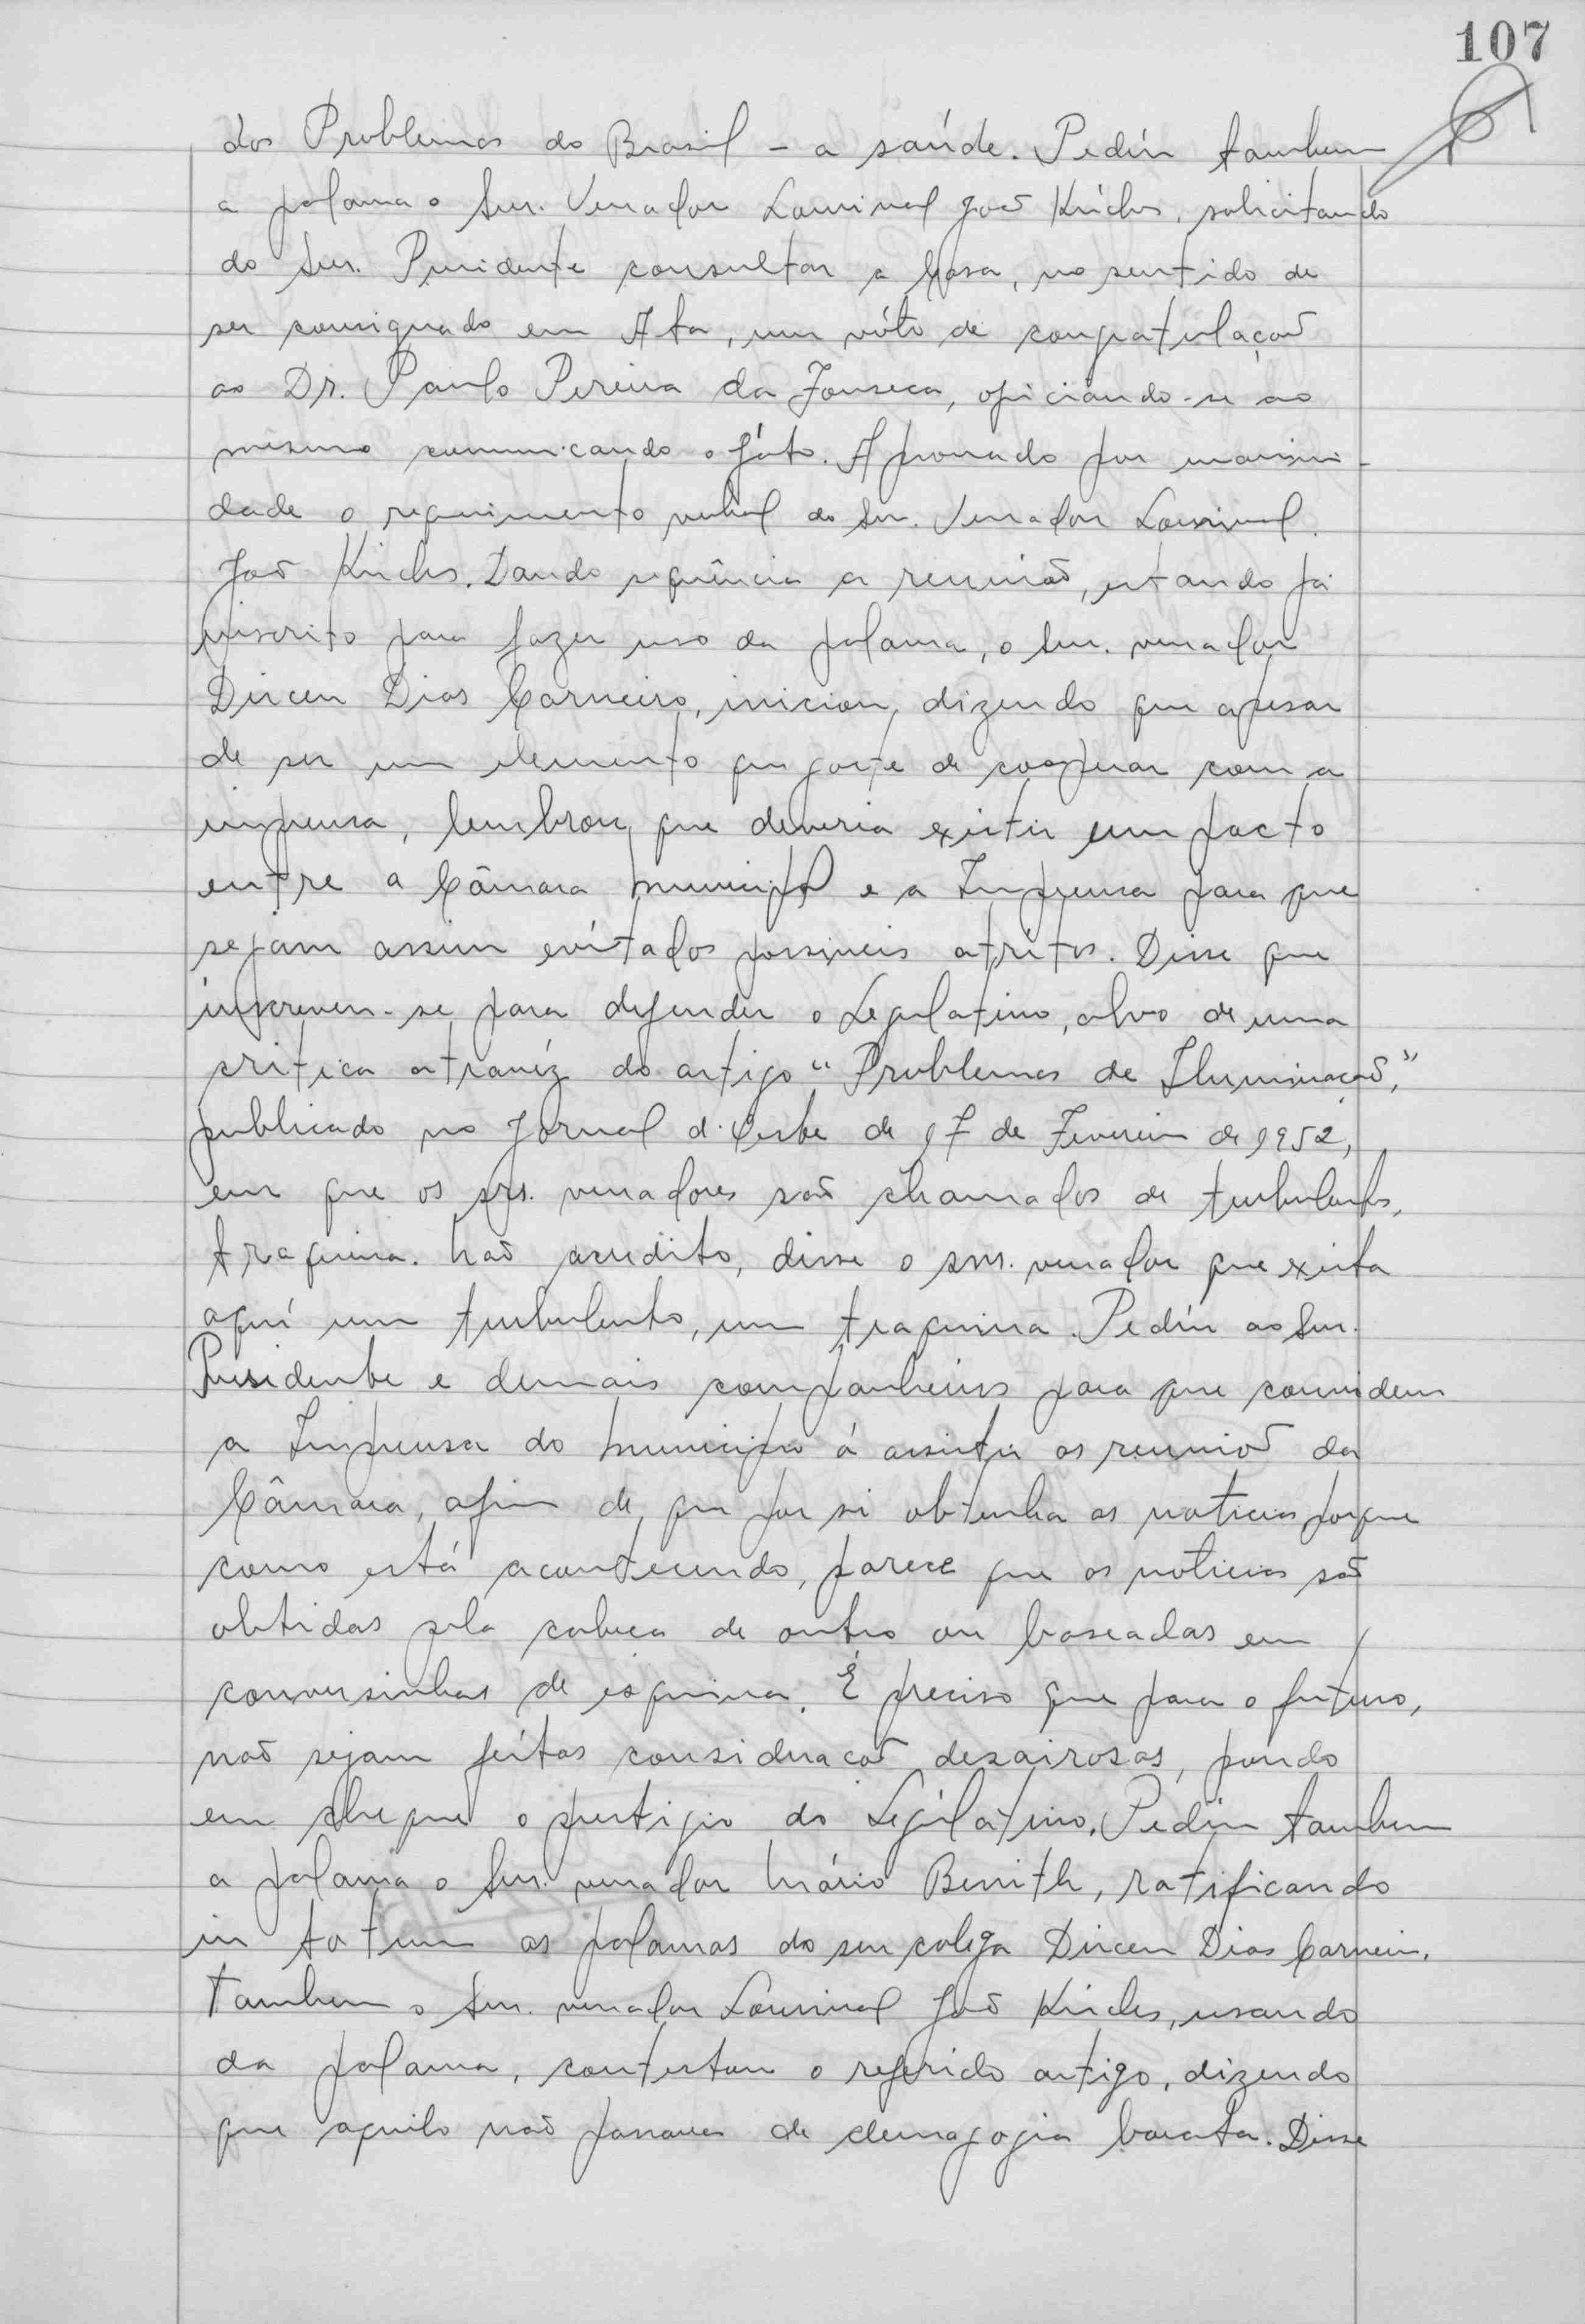 107
dos Problemas do Brasil - a saúde. Pedíu tambem
a palavra o Snr. Vereador Lourival João Kirchs, solicitando
do Snr. Presidente consultar a Casa, no sentido de
ser consignado em Ata, um vóto de congratulação
ao Dr. Paulo Pereira da Fonseca, oficiando-se ao
mesmo comunicando o fáto. Aprovado por unanimi-
dade o requerimento verbal do Snr. Vereador Lourival
João Kirchs. Dando sequência a reunião, estando já
inscrito para fazer uso da palavra, o Snr. vereador
Dirceu Dias Carneiro, iniciou, dizendo que apesar
de ser um elemento que goste de cooperar com a
imprensa, lembrou, que deveria existir um pacto
entre a Câmara Municipal e a Imprensa para que
sejam assim evítados possiveis atritos. Disse que
inscreveu-se para defender o Legislativo, alvo de uma
critica atravéz do artigo "Problemas de Iluminação,"
publicado no Jornal d'Oeste de 17 de Fevereiro de 1952,
em que os srs. vereadores são chamados de turbulentos,
traquina. Não acredito, disse o snr. vereador que exista
aquí um turbulento, um traquina. Pedíu ao Snr.
Presidente e demais companheiros para que convidem
a Imprensa do municipio á assistir as reuniõs da
Câmara, afim de que por si obtenha as noticias porque
como está acontecendo, parece que as noticias são
obtidas pela cabeça de outro ou baseadas em
conversinhas de esquina. É preciso que para o futuro,
não sejam feítas consideracoõ desairosas, pondo
em cheque o prestigio do Legislativo. Pediu tambem
a palavra o Snr. vereador Mário Benith, ratificando
in totum as palavras do seu colega Dirceu Dias Carneiro.
Tambem o Snr. vereador Lourival João Kirchs, usando
da palavra, contestou o referido artigo, dizendo
que aquilo não passava de demagogia barata. Disse